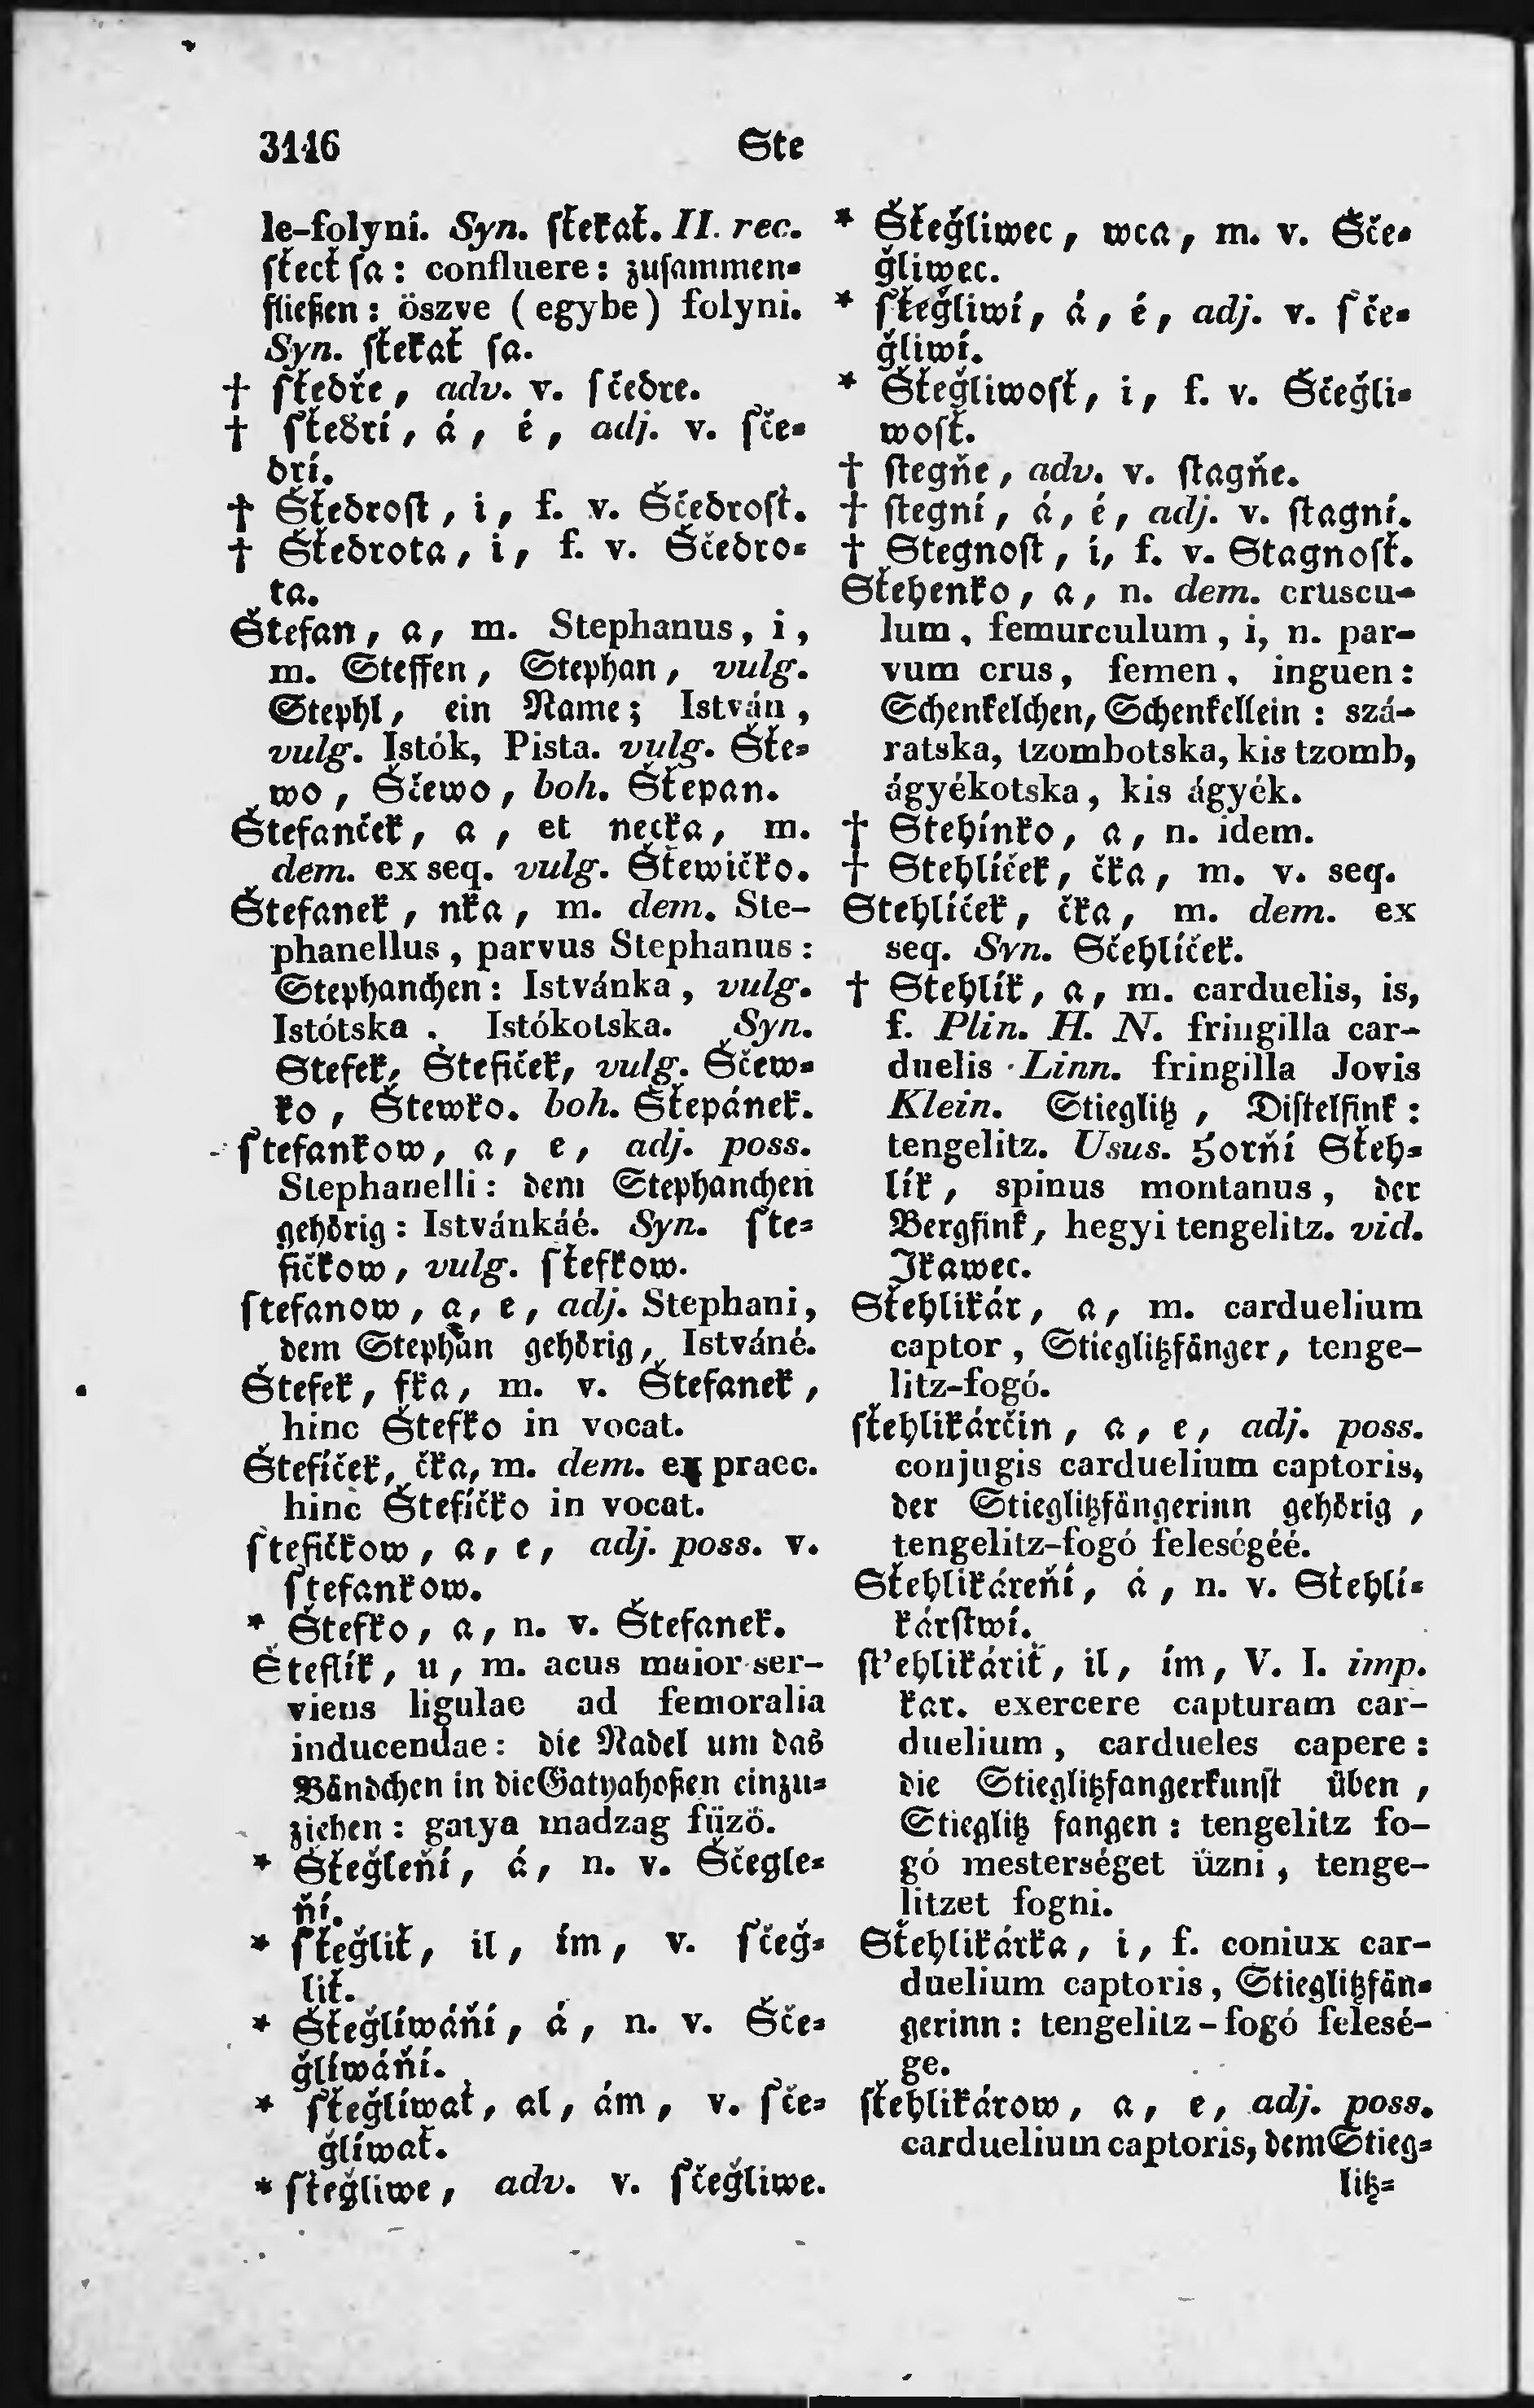 3116
Ste
le-folyni. Syn. sťekať. II. rec.
sťecť sa: confluere: zusammen-
fließen: öszve (egybe) folyni.
Syn. sťekať sa.
† sťedře, adv. v. sčedre.
† sťedrí, á, é, adj. v. sče-
drí.
† Šťedrost, i, f. v. Ščedrosť.
† Šťedrota, i, f. v. Ščedro-
ta.
Štefan, a, m. Stephanus, i,
m. Steffen, Stephan, vulg.
Stephl, ein Name; István,
vulg. Istók, Pista. vulg. Šťe-
wo, Ščewo, boh. Štepan.
Štefanček, a, et necka, m.
dem. ex seq. vulg. Štewičko.
Štefanek, nka, m. dem. Ste-
phanellus, parvus Stephanus:
Stephanchen: Istvánka, vulg.
Istótska, Istókotska. Syn.
Stefek, Štefiček, vulg. Ščew-
ko, Štewko. boh. Štepánek.
štefankow, a, e, adj. poss.
Stephanelli: dem Stephanchen
gehörig: Istvánkáé. Syn. šte-
fičkow, vulg. šťefkow.
štefanow, a, e, adj. Stephani,
dem Stephan gehörig, Istváné.
Štefek, fka, m. v. Štefanek,
hinc Štefko in vocat.
Štefíček, čka, m. dem. ex praec.
hinc Štefíčko in vocat.
štefičkow, a, e, adj. poss. v.
štefankow.
* Štefko, a, n. v. Štefanek.
Šteflík, u, m. acus maior ser-
viens ligulae ad femoralia
inducendae: die Nadel um das
Bändchen in die Gatyahoßen einzu-
ziehen: gatya madzag füzö.
* Šťeğleňí, á, n. v. Ščegle-
ňí.
* šťeğliť, il, ím, v. sčeğ-
liť.
* Šťeğlíwáňí, á, n. v. Šče-
ğlíwáňí.
* šťeğlíwať, al, ám, v. šče-
ğlíwať.
* šťeğliwe, adv. v. ščeğliwe.
* Šťeğliwec, wca, m. v. Šče-
ğliwec.
* šťeğliwí, á, é, adj. v. šče-
ğliwí.
* Šťeğliwosť, i, f. v. Ščeğli-
wosť.
† stegňe, adv. v. stagňe.
† stegní, á, é, adj. v. stagní.
† Stegnost, i, f. v. Stagnosť.
Sťehenko, a, n. dem. cruscu-
lum, femurculum, i, n. par-
vum crus, femen, inguen:
Schenkelchen, Schenkellein: szá-
ratska, tzombotska, kis tzomb,
ágyékotska, kis ágyék.
† Stehínko, a, n. idem.
† Stehlíček, čka, m. v. seq.
Sťehlíček, čka, m. dem. ex
seq. Syn. Sčehlíček.
† Stehlík, a, m. carduelis, is,
f. Plin. H. N. fringilla car-
duelis Linn. fringilla Jovis
Klein. Stieglitz, Distelfink:
tengelitz. Usus. Horňí Sťeh-
lík, spinus montanus, der
Bergfink, hegyi tengelitz. vid.
Jkawec.
Sťehlikár, a, m. carduelium
captor, Stieglitzfänger, tenge-
litz-fogó.
sťehlikárčin, a, e, adj. poss.
conjugis carduelium captoris,
der Stieglitzfängerinn gehörig,
tengelitz-fogó feleségéé.
Sťehlikáreňí, á, n. v. Sťehli-
kárstwí.
st'ehlikáriť, il, ím, V. I. imp.
kar. exercere capturam car-
duelium, cardueles capere:
die Stieglitzfangerkunst üben,
Stieglitz fangen: tengelitz fo-
gó mesterséget üzni, tenge-
litzet fogni.
Sťehlikárka, i, f. coniux car-
duelium captoris, Stieglitzfän-
gerinn: tengelitz-fogó felesé-
ge.
sťehlikárow, a, e, adj. poss.
carduelium captoris, dem Stieg-
litz-